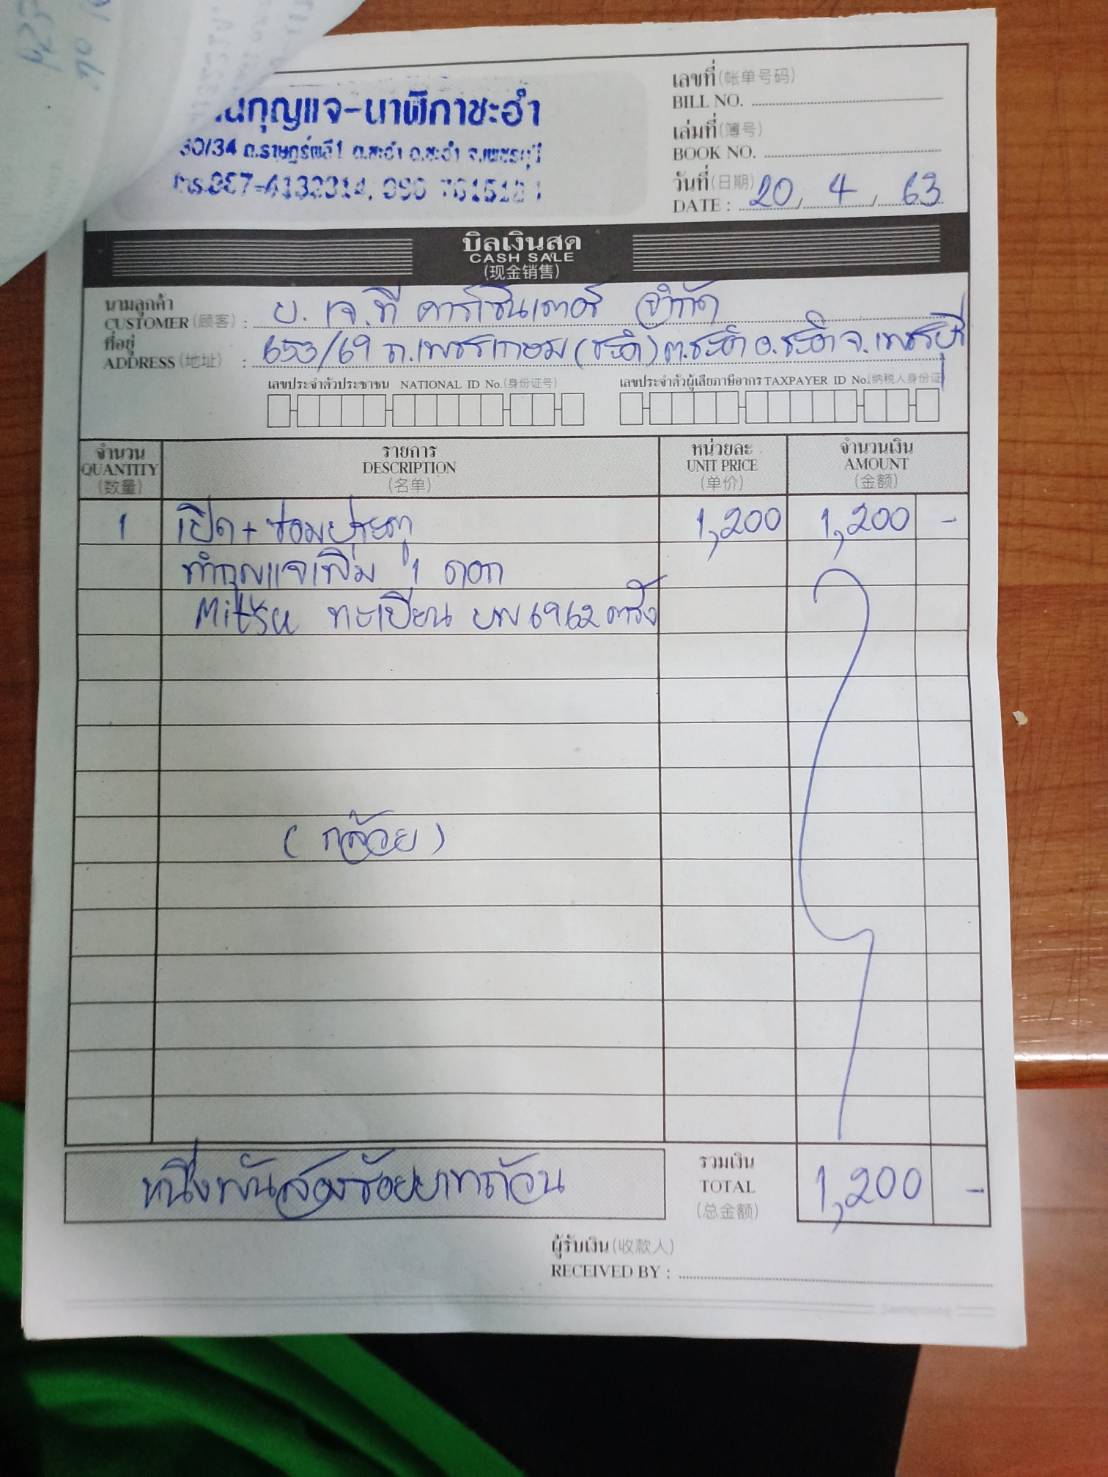 กุญแจ-นาฬิกาชะอำ
30/34 ถ.ราษฎร์พลี1 ต.ชะอำ อ.ชะอำ จ.เพชรบุรี
เลขที่ (帐单号码)
BILL NO.
เล่มที่ (簿号)
BOOK NO.
วันที่ (日期)
DATE : 20 / 4 / 63
บิลเงินสด
CASH SALE
(现金销售)
นามลูกค้า
CUSTOMER (顾客) : บ. เจ.ที คาร์เซ็นเตอร์ จำกัด
ที่อยู่
ADDRESS (地址) : 653/69 ถ.เพชรเกษม (ชะอำ) ต.ชะอำ อ.ชะอำ จ.เพชรบุรี
เลขประจำตัวประชาชน NATIONAL ID No. (身份证号) เลขประจำตัวผู้เสียภาษีอากร TAXPAYER ID No. (纳税人身份证
จำนวน รายการ หน่วยละ จำนวนเงิน
QUANTITY DESCRIPTION UNIT PRICE AMOUNT
(数量) (名单) (单价) (金额)
1 เปิด+ซ่อมประตู 1,200 1,200 -
ทำกุญแจเพิ่ม 1 ดอก
Mitsu ทะเบียน บพ 6962 ตรัง
(กล้วย)
หนึ่งพันสองร้อยบาทถ้วน
รวมเงิน
TOTAL 1,200 -
(总金额)
ผู้รับเงิน (收款人)
RECEIVED BY :